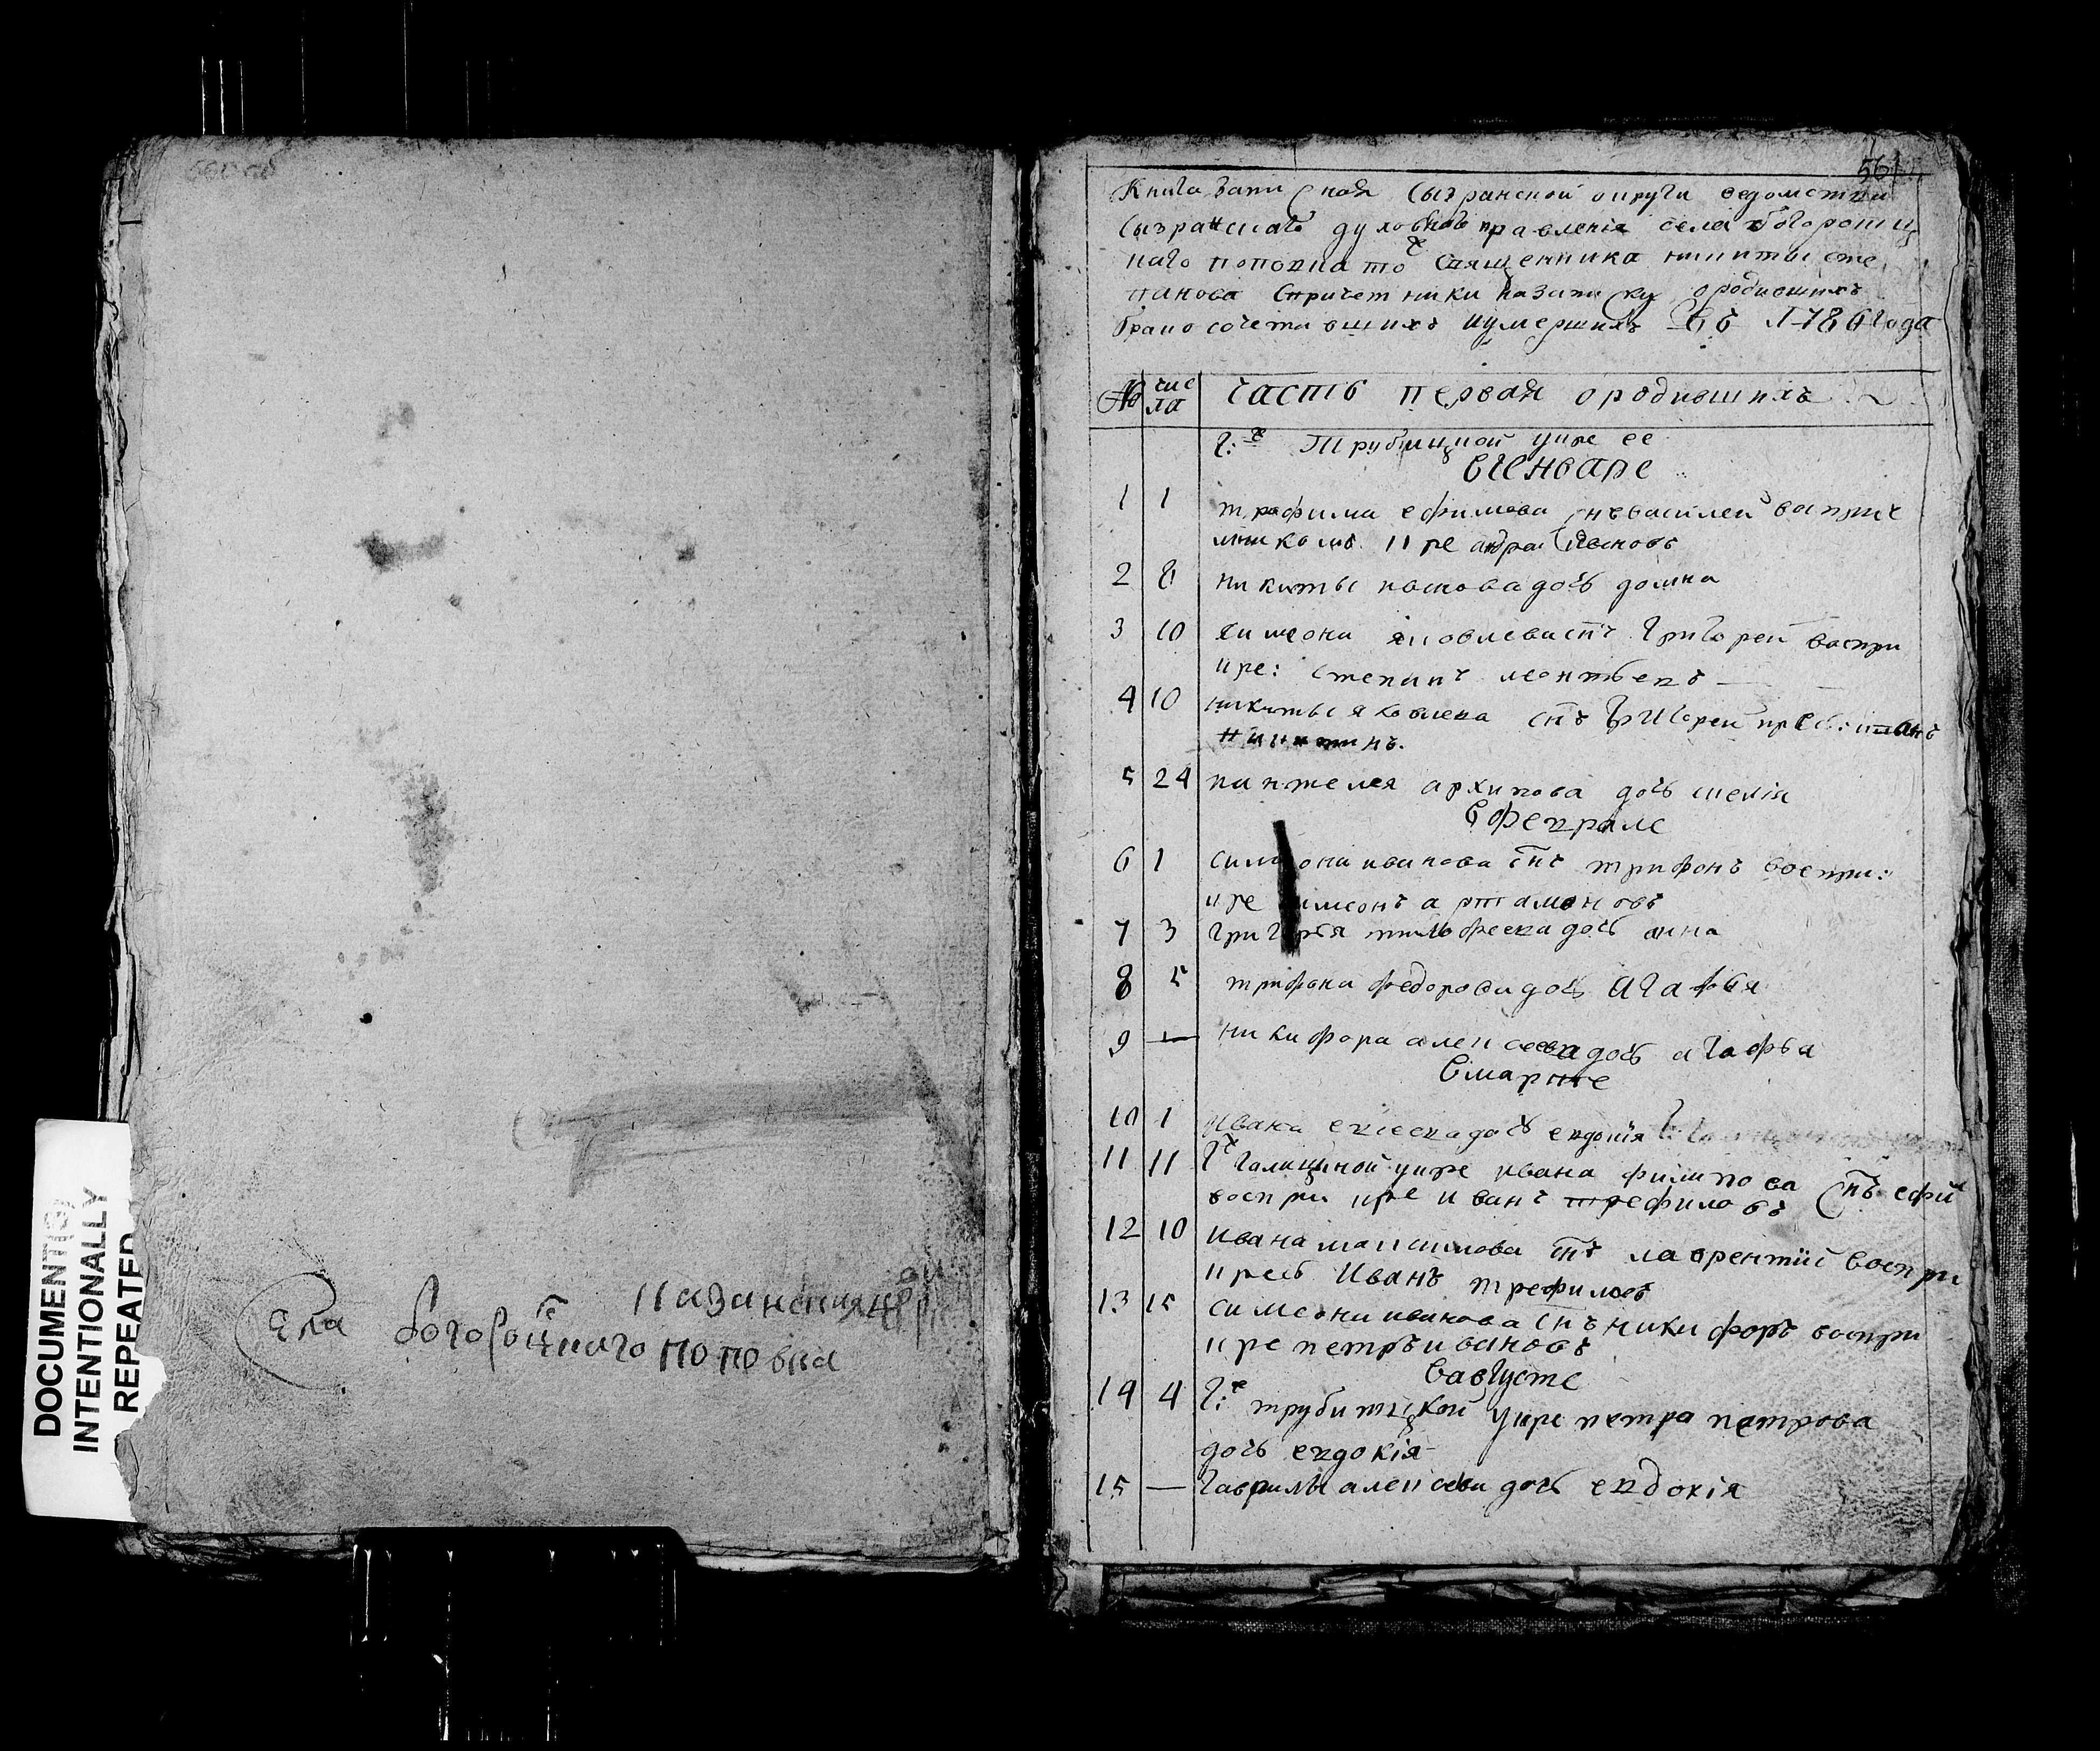 DOCUMENT(S)
INTENTIONALLY
REPEATED
Села богороцкаго поповка
казанския
561
Книга записная Сызранской округи ведомства
Сызранскаго духовнаго правления села богородиц
каго поповка тоѣ священника никиты сте
панова Спричетники назаписку ородившихъ
брако сочетавшихъ иумершихъ Съ 1786 Года
№ чис
ла
часть первая ородившихъ
Г: Трубицкой у нре ее
вгенваре
1 1 трофима ефимова снъ василей восприе
мникомъ кре андрей Ивановъ
2 8 никиты иванова дочь домна
3 10 симеона яковлева снъ григорей воспри
кре: степанъ леонтьевъ
4 10 никиты яковлева снъ григорей вре: иванъ
никитинъ.
5 24 пантелея архипова дочь
вфеврале
6 1 симеона иванова снъ трифонъ воспри:
кре симеонъ артамоновъ
7 3 григорья тимофеева дочь анна
8 5 трифона федорова дочь агафья
9 — никифора алексеева дочь агафья
вмарте
10 1 Ивана евсеева дочь евдокия
11 11 Г: галициной у кре ивана филипова снъ ефи
воспри кре иванъ трефиловъ
12 10 ивана максимова снъ лаврентий воспри
кресь Иванъ трефиловъ
13 15 симеона иванова снъ никифоръ воспри
кре петръ ивановъ
вавгусте
14 4 Г: трубитцкой у кре петра петрова
дочь евдокия
15 — гаврилы алексева дочь евдокия